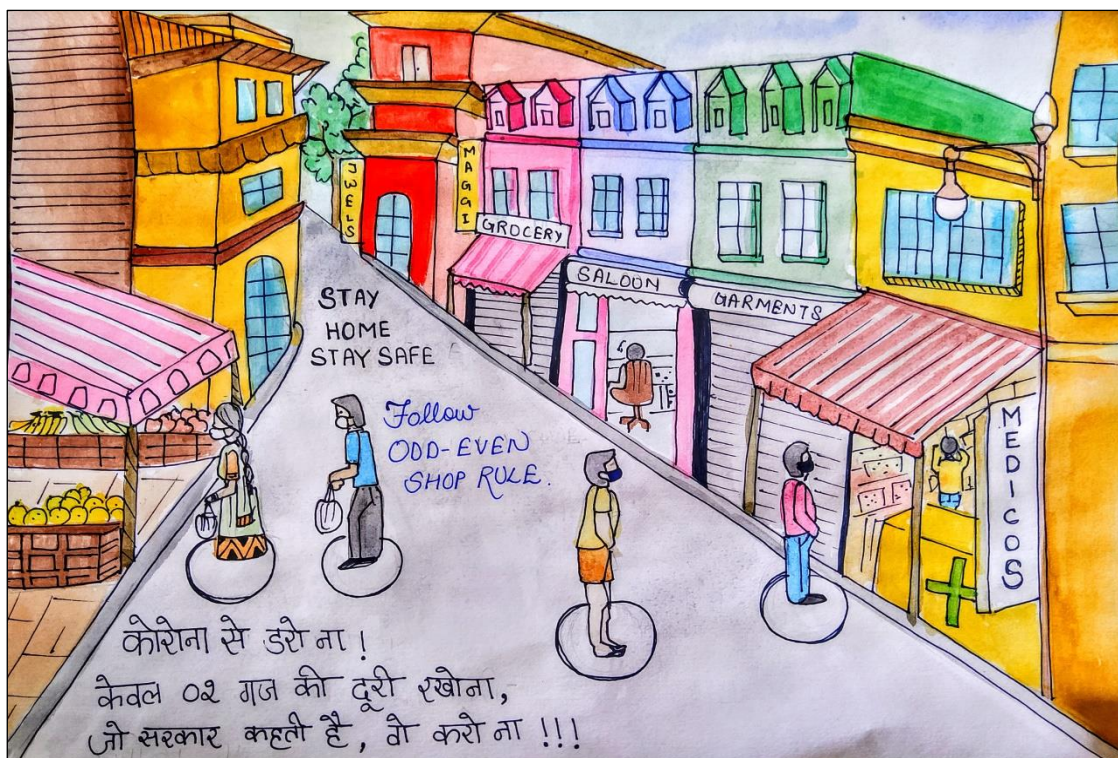 JWELS
MAGGI
GROCERY
SALOON
GARMENTS
MEDICOS
STAY
HOME
STAY SAFE
Follow
ODD-EVEN
SHOP RULE.
कोरोना से डरो ना !
केवल ०२ गज की दूरी रखोना,
जो सरकार कहती है, वो करो ना !!!